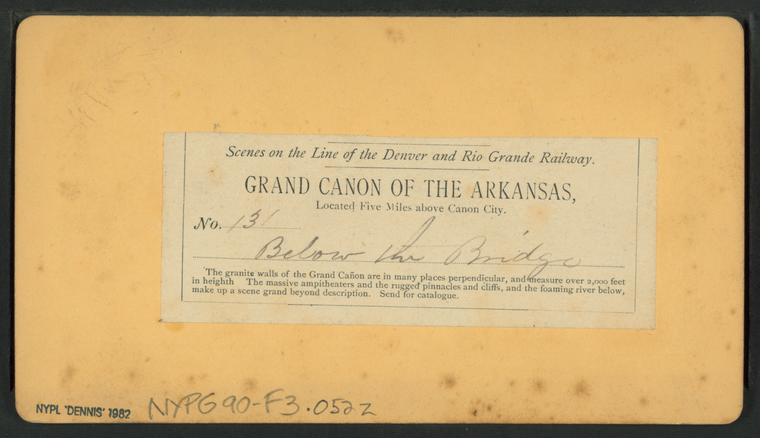 Scenes on the Line of the Denver and Rio Grande Railway.
GRAND CANON OF THE ARKANSAS,
Located Five Miles above Canon City.
No. 131
Below the Bridge
The granite walls of the Grand Cañon are in many places perpendicular, and measure over 2,000 feet
in heighth The massive ampitheaters and the rugged pinnacles and cliffs, and the foaming river below,
make up a scene grand beyond description. Send for catalogue.
NYPL 'DENNIS' 1982
NYPG90-F3.052Z